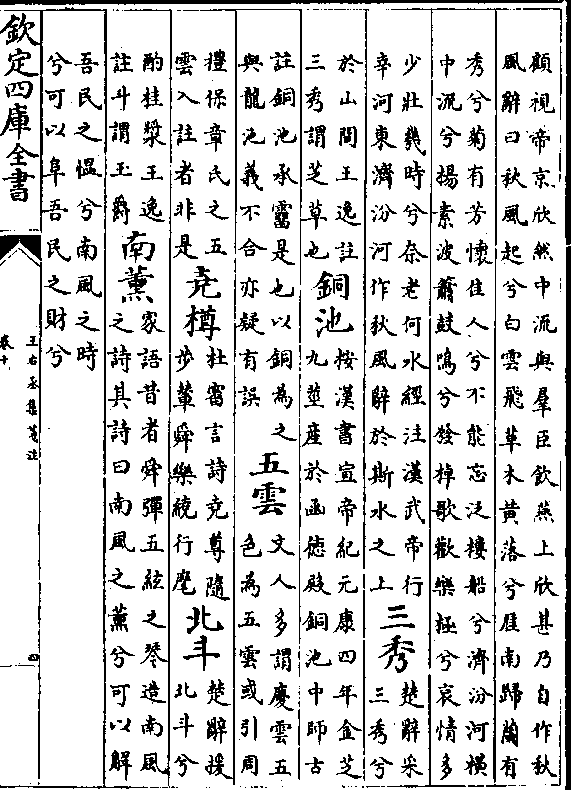 顧視帝京欣然中流與羣臣飲燕上欣甚乃自作秋
風辭曰秋風起兮白雲飛草木黄落兮雁南歸蘭有
秀兮菊有芳懷佳人兮不能忘泛樓船兮濟汾河橫
中流兮揚素波簫鼓鳴兮發棹歌歡樂極兮哀情多
少壯幾時兮奈老何水經注漢武帝行
幸河東濟汾河作秋風辭於斯水之上
三秀
楚辭采
三秀兮
於山間王逸註
三秀謂芝草也
銅池
按漢書宣帝紀元康四年金芝
九莖産於函德殿銅池中師古
註銅池承霤是也以銅為之
與龍池義不合亦疑有誤
五雲
文人多謂慶雲五
色為五雲或引周
禮保章氏之五
雲入註者非是
堯樽
杜審言詩堯尊隨
步輦舜樂繞行麾
北斗
楚辭援
北斗兮
酌桂漿王逸
註斗謂玉爵
南薫
家語昔者舜彈五絃之琴造南風
之詩其詩曰南風之薫兮可以解
吾民之愠兮南風之時
兮可以阜吾民之財兮
欽定四庫全書
王右丞集箋注
卷十
四